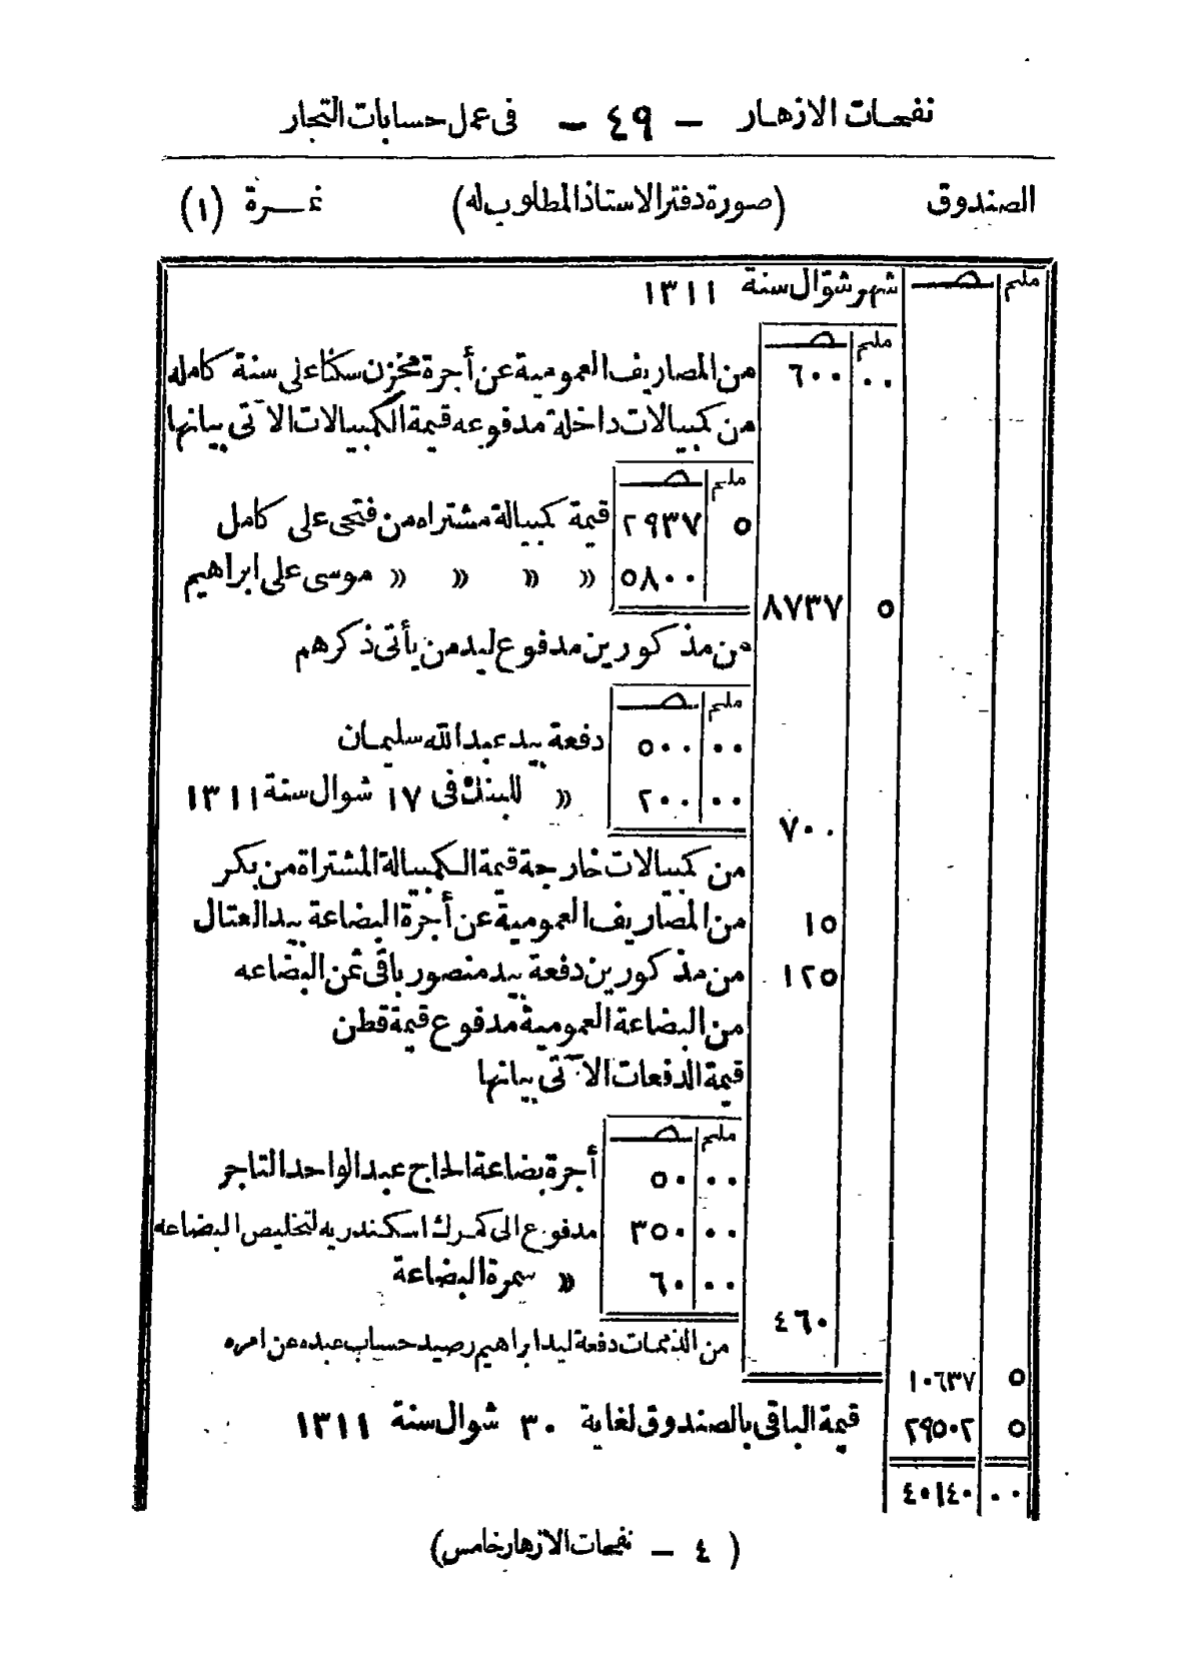 نفحات الازهار — ٤٩ — فى عمل حسابات التجار
الصندوق (صورة دفتر الاستاذ المطلوب له) نمرة (١)
مليم صـ شهر شوّال سنة ١٣١١
مليم صـ
٠٠ ٦٠٠ من المصاريف العمومية عن أجرة مخزن سكنا على سنة كامله
من كمبيالات داخلة مدفوعه قيمة الكمبيالات الآتى بيانها
مليم صـ
٥ ٢٩٣٧ قيمة كمبيالة مشتراه من فتحى على كامل
٥٨٠٠ » » » » موسى على ابراهيم
٥ ٨٧٣٧
من مذكورين مدفوع ليد من يأتى ذكرهم
مليم صـ
٠٠ ٥٠٠ دفعة بيد عبد الله سليمان
٠٠ ٢٠٠ » للبنك فى ١٧ شوال سنة ١٣١١
٧٠٠
من كمبيالات خارجة قيمة الكمبيالة المشتراة من بكر
١٥ من المصاريف العمومية عن أجرة البضاعة بيد العتال
١٢٥ من مذكورين دفعة بيد منصور باقى ثمن البضاعه
من البضاعة العمومية مدفوع قيمة قطن
قيمة الدفعات الآتى بيانها
مليم صـ
٠٠ ٥٠ أجرة بضاعة الحاج عبد الواحد التاجر
٠٠ ٣٥٠ مدفوع الى كمرك اسكندريه لتخليص البضاعه
٠٠ ٦٠ » سمرة البضاعة
٤٦٠
من الذممات دفعة ليد ابراهيم رصيد حساب عبده عن امره
٥ ١٠٦٣٧
٥ ٢٩٥٠٢ قيمة الباقى بالصندوق لغاية ٣٠ شوال سنة ١٣١١
٠٠ ٤٠١٤٠
(٤ — نفحات الازهار خامس)